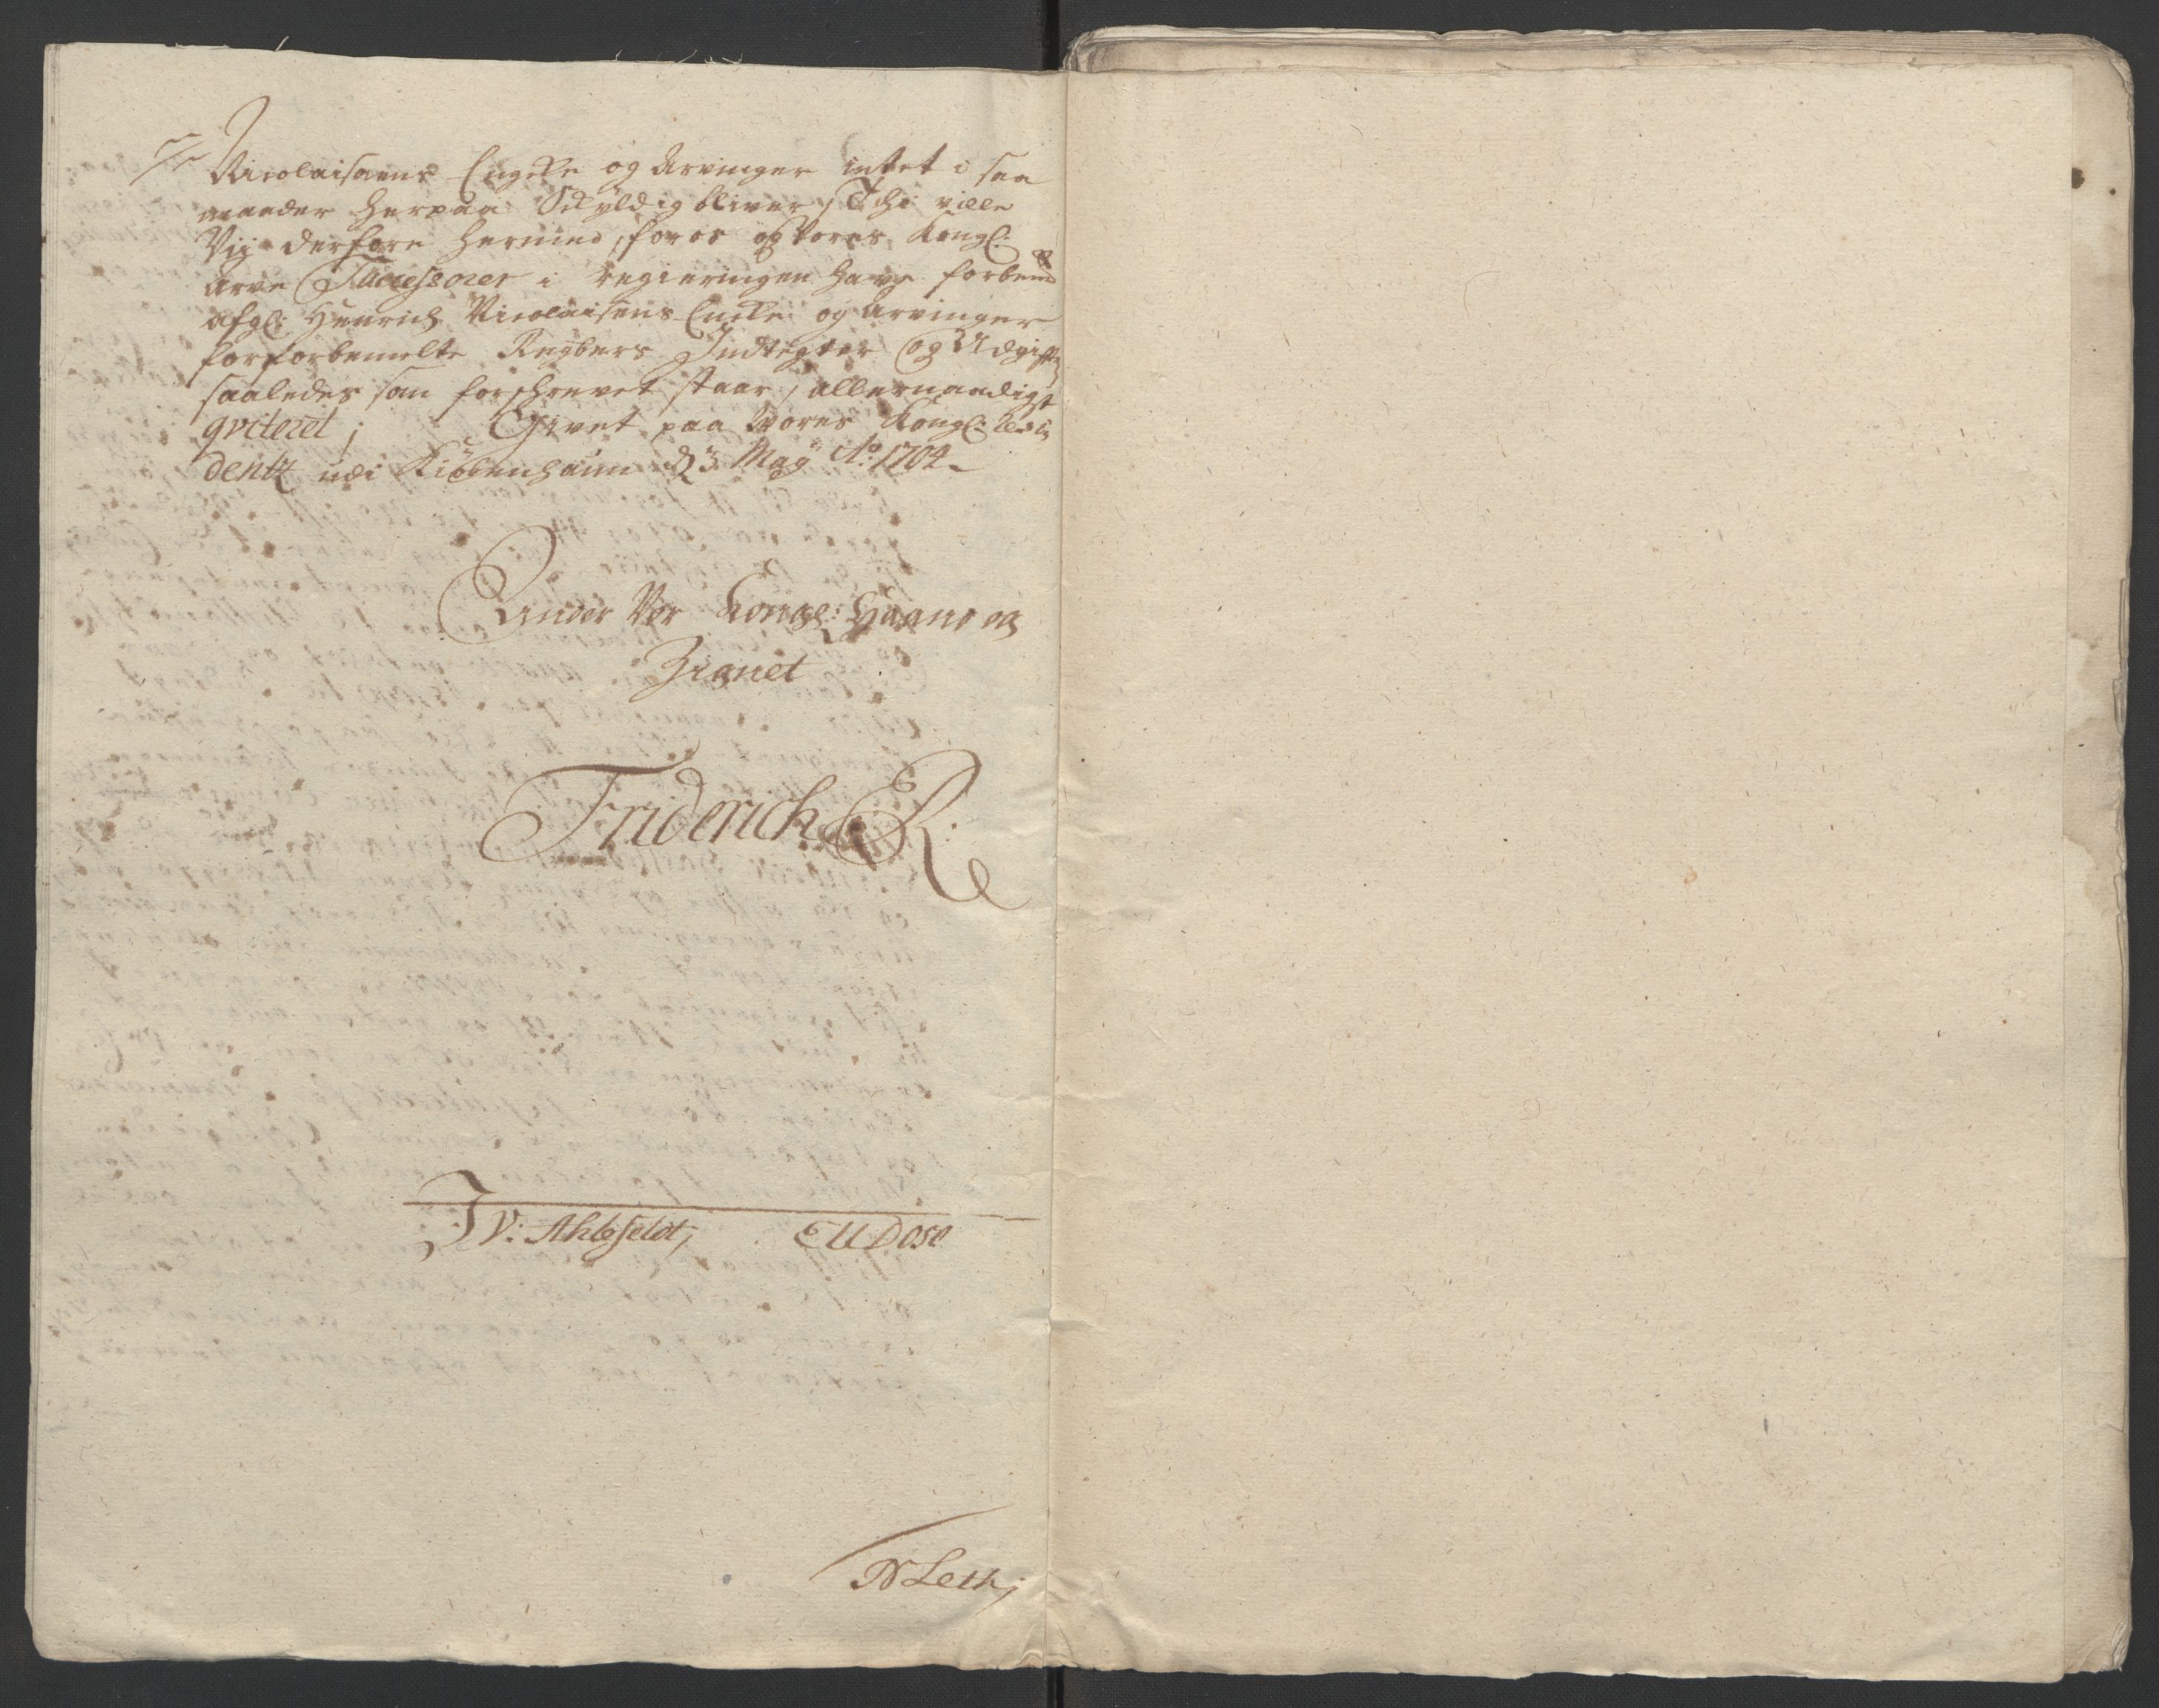 Nicolaisøns Encke og Arvinger intet i saa
maader herpaa Skyldig bliver, Thi ville
Vij derfore hermed, for os og Vores Kongl:
Arve Successorer i regieringen have forbemte
afgl: Henrich Nicolaisens Encke og Arvinger
for forbemelte Regbers Indtegter og Udgifter
saaledes som forschrevet staar, allernaadigst
qviteret; Givet paa Vores Kongl: Resi
dentz udi Kiøbenhaun d 3 Maÿ Ao: 1704
Under Vor Kongel: Haand og
Zignet
Friderich R.
J V: Ahlefeldt; CUDose
N Leth;